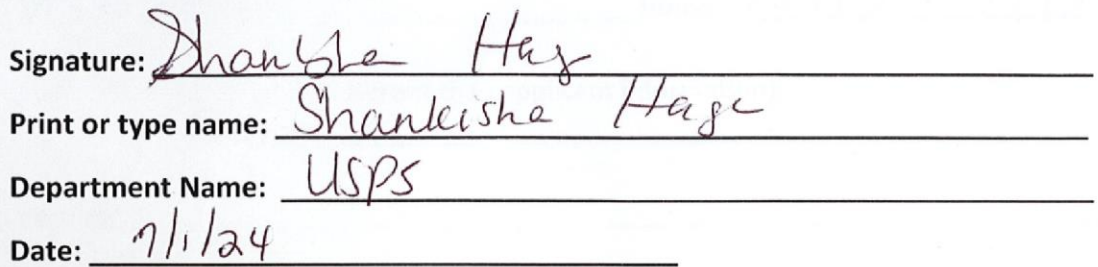 Signature: Shankisha Hage
Print or type name: Shankeisha Hage
Department Name: USPS
Date: 7/1/24